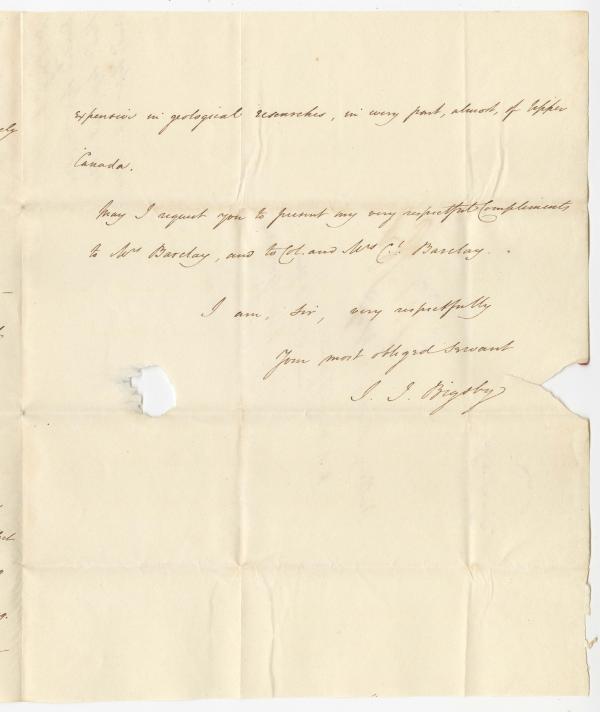 expensive in geological researches, in every part, almost, of Upper
Canada.
May I request you to present my very respectful Complements
to Mrs Barclay, and to Col. and Mrs Cl. Barclay.
I am, Sir, very respectfully
Your most obliged Servant
J. J. Bigsby